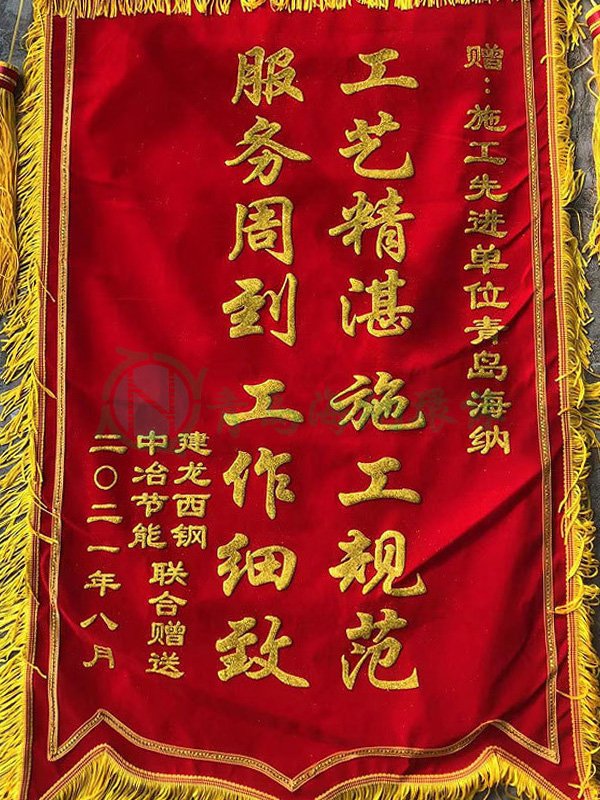 赠：施工先进单位青岛海纳
工艺精湛 施工规范
服务周到 工作细致
建龙西钢
中冶节能
联合赠送
二〇二一年八月